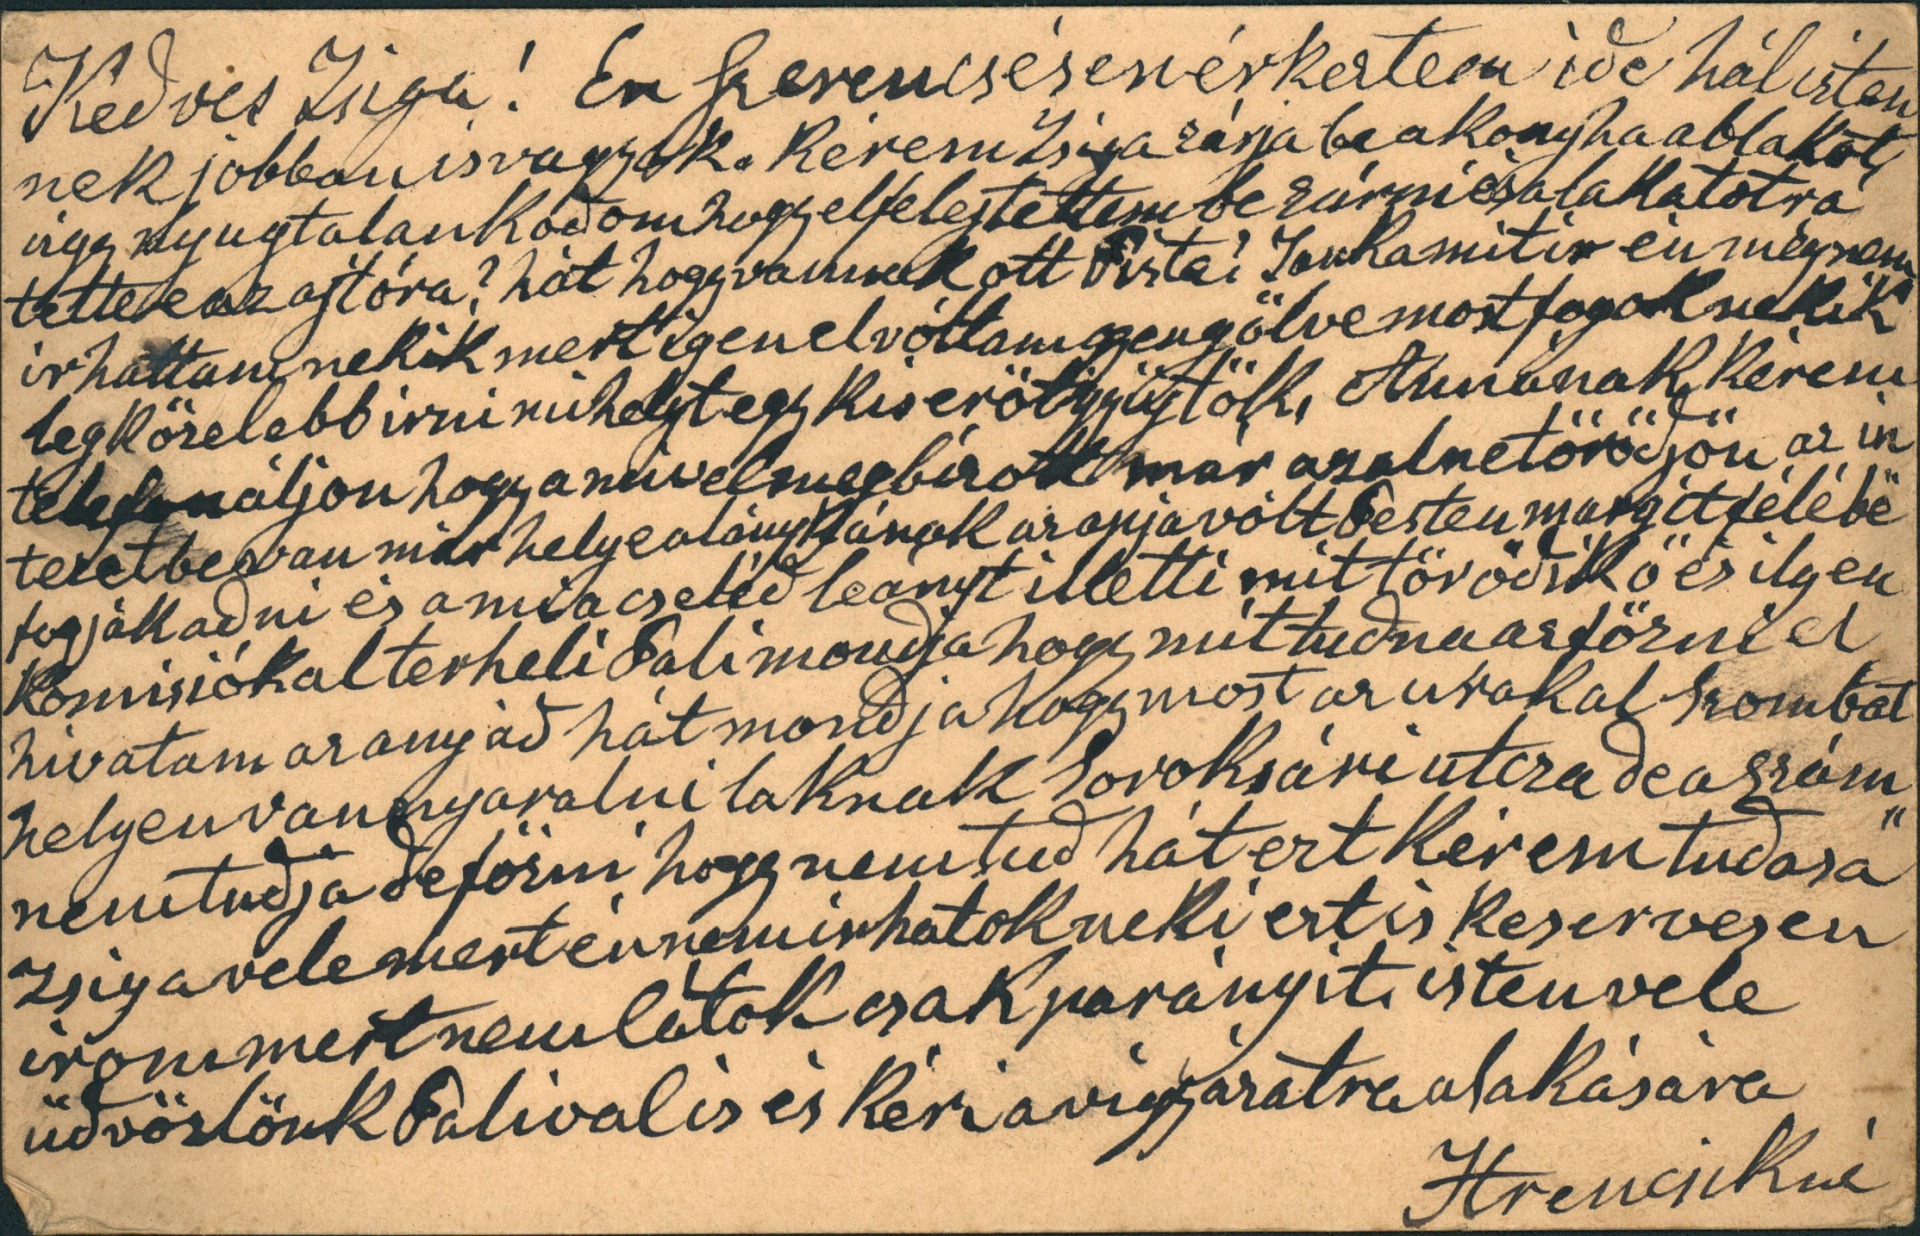 Kedves Zsiga! En szerencsésen érkestem ide hál isten
nek jobban is vagyok. Kérem Zsiga zárja be a konyha ablakot,
úgy nyugtalankodom hogy elfelejtettem be zárni és a lakatot rá
tette e az ajtóra? hát hogy vannak ott Pista? Jankamit ir én még nem
irhattam nekik mert igen el vóltam gyengölve most fogok nekik
leg közelebb irni mihelyt egy kis erőt gyüjtök, Annának kérem
telefonáljon hogy a mivel megbizott már azal ne törődjön az in
tezetbe van már helye a lánykának az apja vólt Pesten margit félébe
fogják adni és a mi a cseléd leányt illetti mit törődik ő és ilyen
komisiókal terheli Pali mondja hogy mit tudna az főzni el
hivatam az anyjád hát mondja hogy most az urakal Szombat
helyen van nyaralni laknak Soroksári utcza de a szám
nem tudja de főzni hogy nem tud hát ezt kérem tudasa
Zsiga vele mert én nem irhatok neki ezt is keservesen
irom mert nem látok csak parányit. isten vele
üdvözlönk Palival is és kéri a vigyázatra a lakására
Hrencsikné